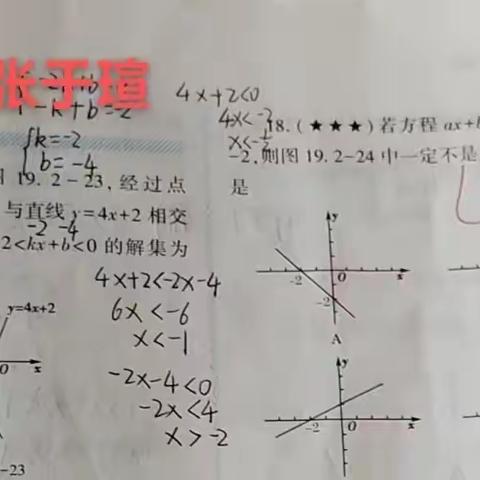 张于瑄
-k+b=-2
k=-2
b=-4
19.2-23,经过点
与直线y=4x+2相交
-2 -4
2<kx+b<0的解集为
4x+2<0
4x<-2
4x+2<-2x-4
6x<-6
x<-1
-2x-4<0
-2x<4
x>-2
y=4x+2
O x
-23
18.(★★★)若方程ax+
-2,则图19.2-24中一定不是
是
y
-2 O x
-2
A
y
-2 O x